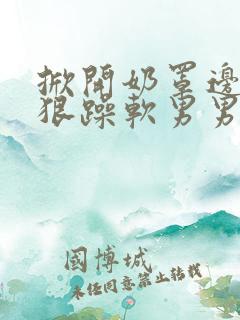 掀開奶罩邊
狠躁軟男男
國博城
未任同意禁止转载